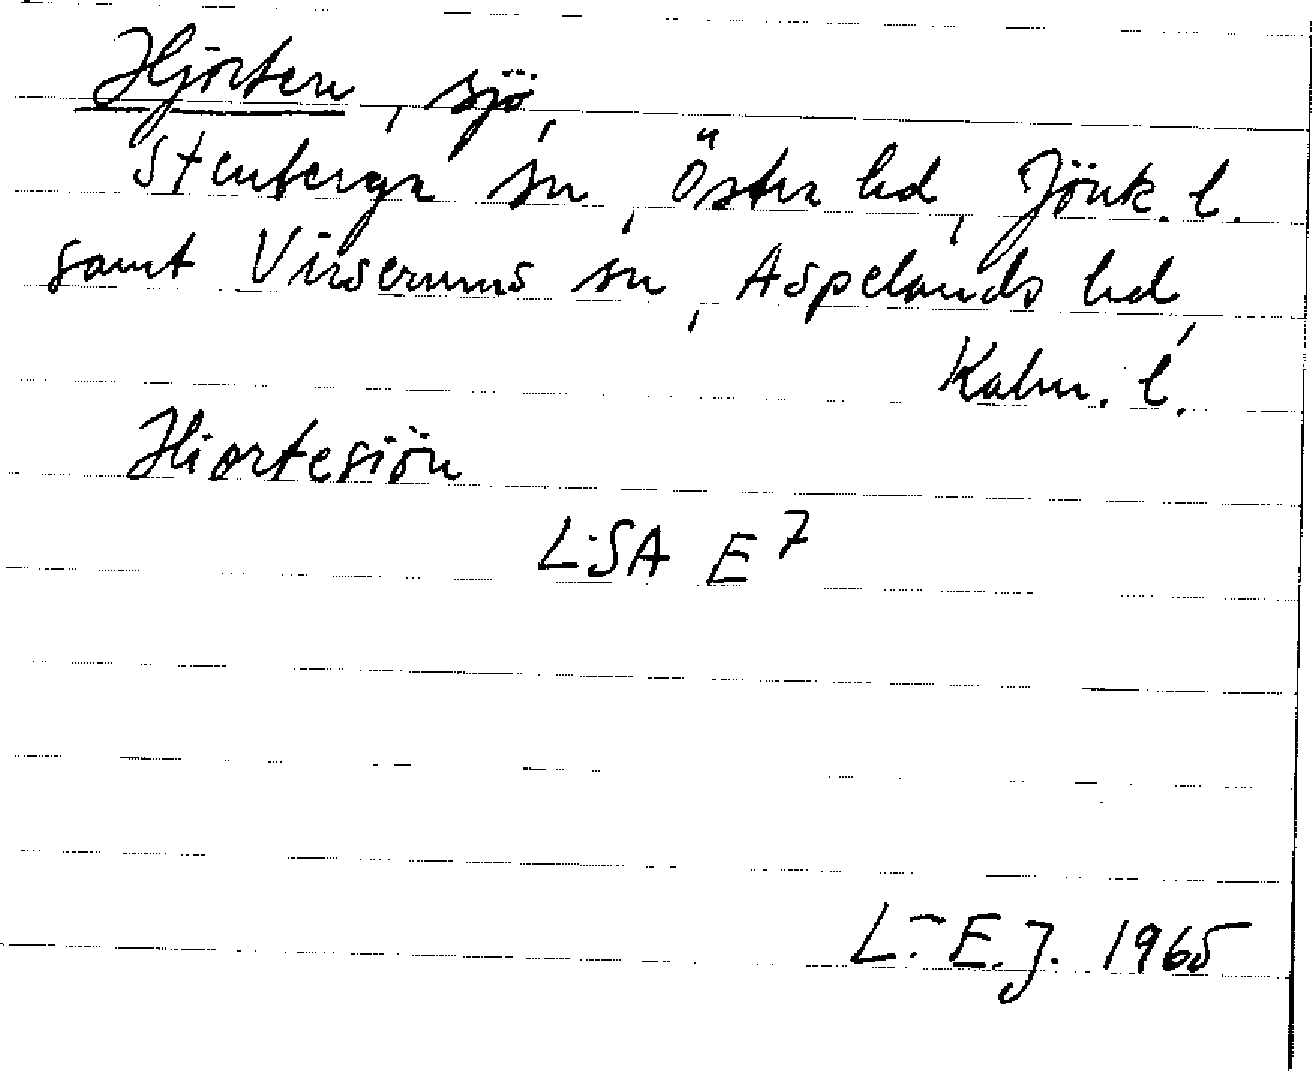 Hjorten, sjö,
Stenberga sn, Östra hd, Jönk. l.
samt Virserums sn, Aspelands hd,
Kalm. l.
Hiortesiön
LSA E7
L.-E.J. 1965